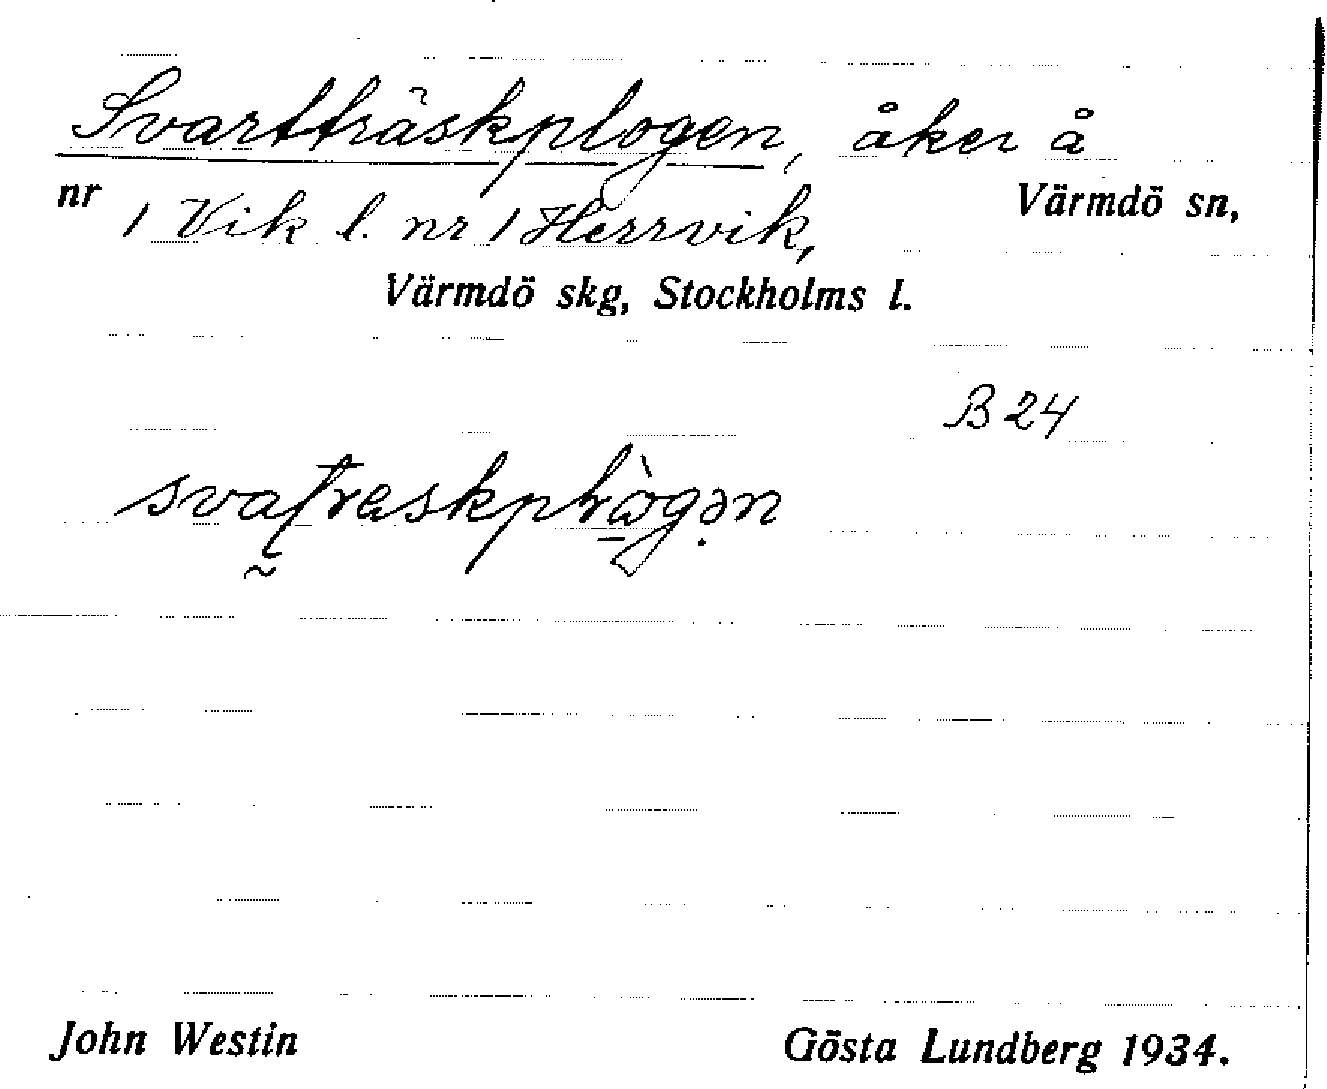 Svartträskplogen, åker å
nr 1 Vik l. nr 1 Herrvik, Värmdö sn,
Värmdö skg, Stockholms l.
B 24
John Westin Gösta Lundberg 1934.